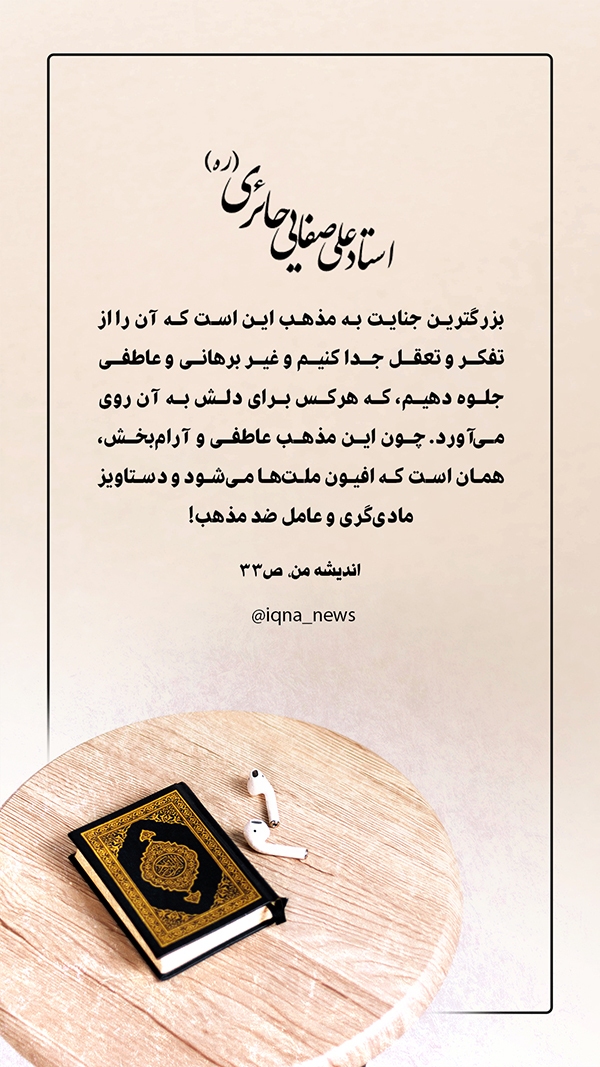 استاد علی صفایی حائری (ره)
بزرگترین جنایت به مذهب این است که آن را از
تفکر و تعقل جدا کنیم و غیر برهانی و عاطفی
جلوه دهیم، که هرکس برای دلش به آن روی
می‌آورد. چون این مذهب عاطفی و آرام‌بخش،
همان است که افیون ملت‌ها می‌شود و دستاویز
مادی‌گری و عامل ضد مذهب!
اندیشه من، ص۳۳
@iqna_news